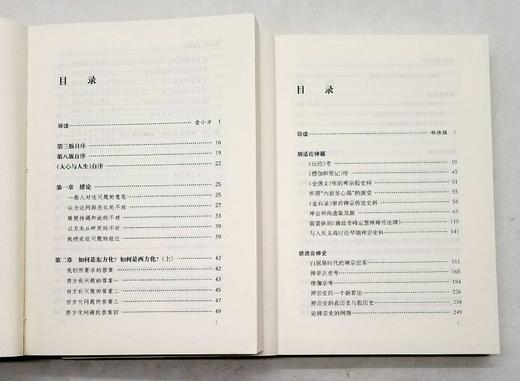 目　录
导读 金小方 1
第三版自序 16
第八版自序 19
《人心与人生》自序 22
第一章　绪论 25
一般人对这问题的意思 25
以为这问题还远的不对
随便持调和论的不对
以为无从研究的不对
我研究这问题的经过
第二章　如何是东方化？如何是西方化？（上） 42
我们所要求的答案 42
西方化问题的答案一
西方化问题的答案二
西方化问题的答案三 47
西方化问题的答案四 49
目　录
导读 韩传强 1
胡适论禅籍
《坛经》考 19
《楞伽师资记》序 45
《全唐文》里的禅宗假史料 51
所谓“六祖呈心偈”的演变
《金石录》里的禅宗传法史料
神会和尚遗集及跋
跋裴休的《唐故圭峰定慧禅师传法碑》
与入矢义高讨论早期禅宗史料
胡适论禅史
白居易时代的禅宗世系 161
禅学古史考 165
楞伽宗考 184
禅宗史的一个新看法 226
禅宗史的真历史与假历史 238
论禅宗史的纲领 249